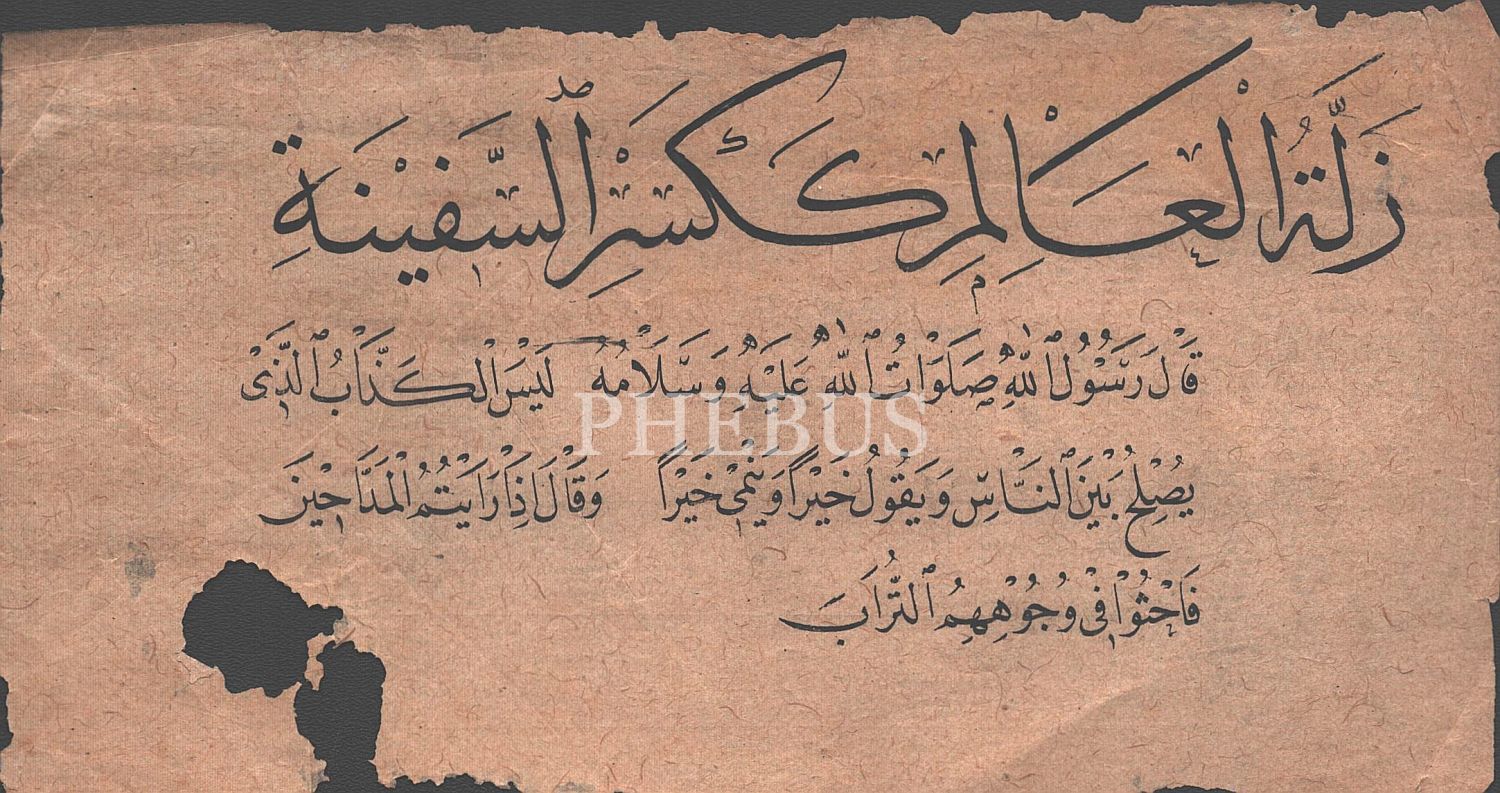 زَلَّةُ الْعَالِمِ كَكَسْرِ ٱلسَّفِيْنَةِ
قَالَ رَسُوْلُ ٱللّٰهِ صَلَوَاتُ ٱللّٰهِ عَلَيْهِ وَسَلَامُهُ لَيْسَ الْكَذَّابُ ٱلَّذِيْ
PHEBUS
يُصْلِحُ بَيْنَ ٱلنَّاسِ وَيَقُوْلُ خَيْرًا وَيَنْمِيْ خَيْرًا وَقَالَ اِذَا رَاَيْتُمُ الْمَدَّاحِيْنَ
فَاحْثُوْا فِيْ وُجُوْهِهِمُ ٱلتُّرَابَ